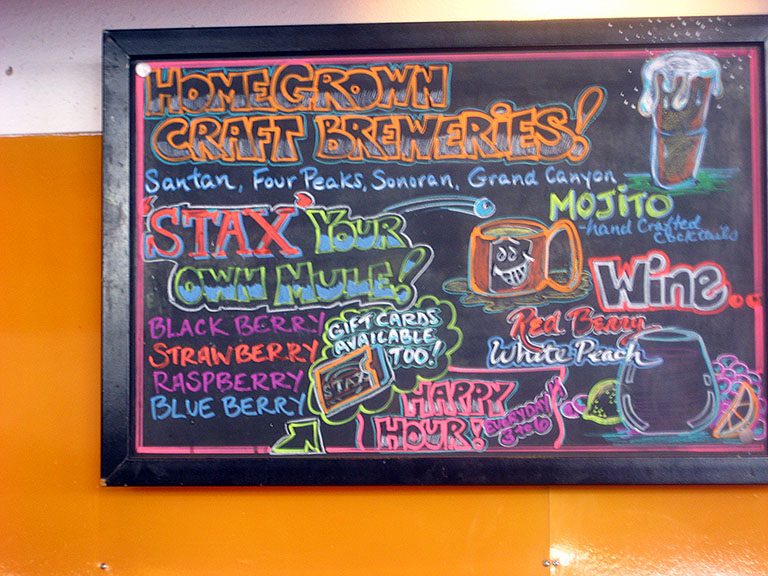 HOMEGROWN
CRAFT BREWERIES!
Santan, Four Peaks, Sonoran, Grand Canyon
'STAX' YOUR
OWN MULE!
BLACK BERRY
STRAWBERRY
RASPBERRY
BLUE BERRY
GIFT CARDS
AVAILABLE
TOO!
STAX
HAPPY
HOUR!
EVERYDAY
3 to 6
MOJITO
-hand Crafted
cocktails
Wine...
Red Berry
White Peach